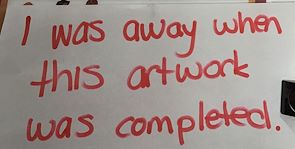 I was away when
this artwork
was completed.